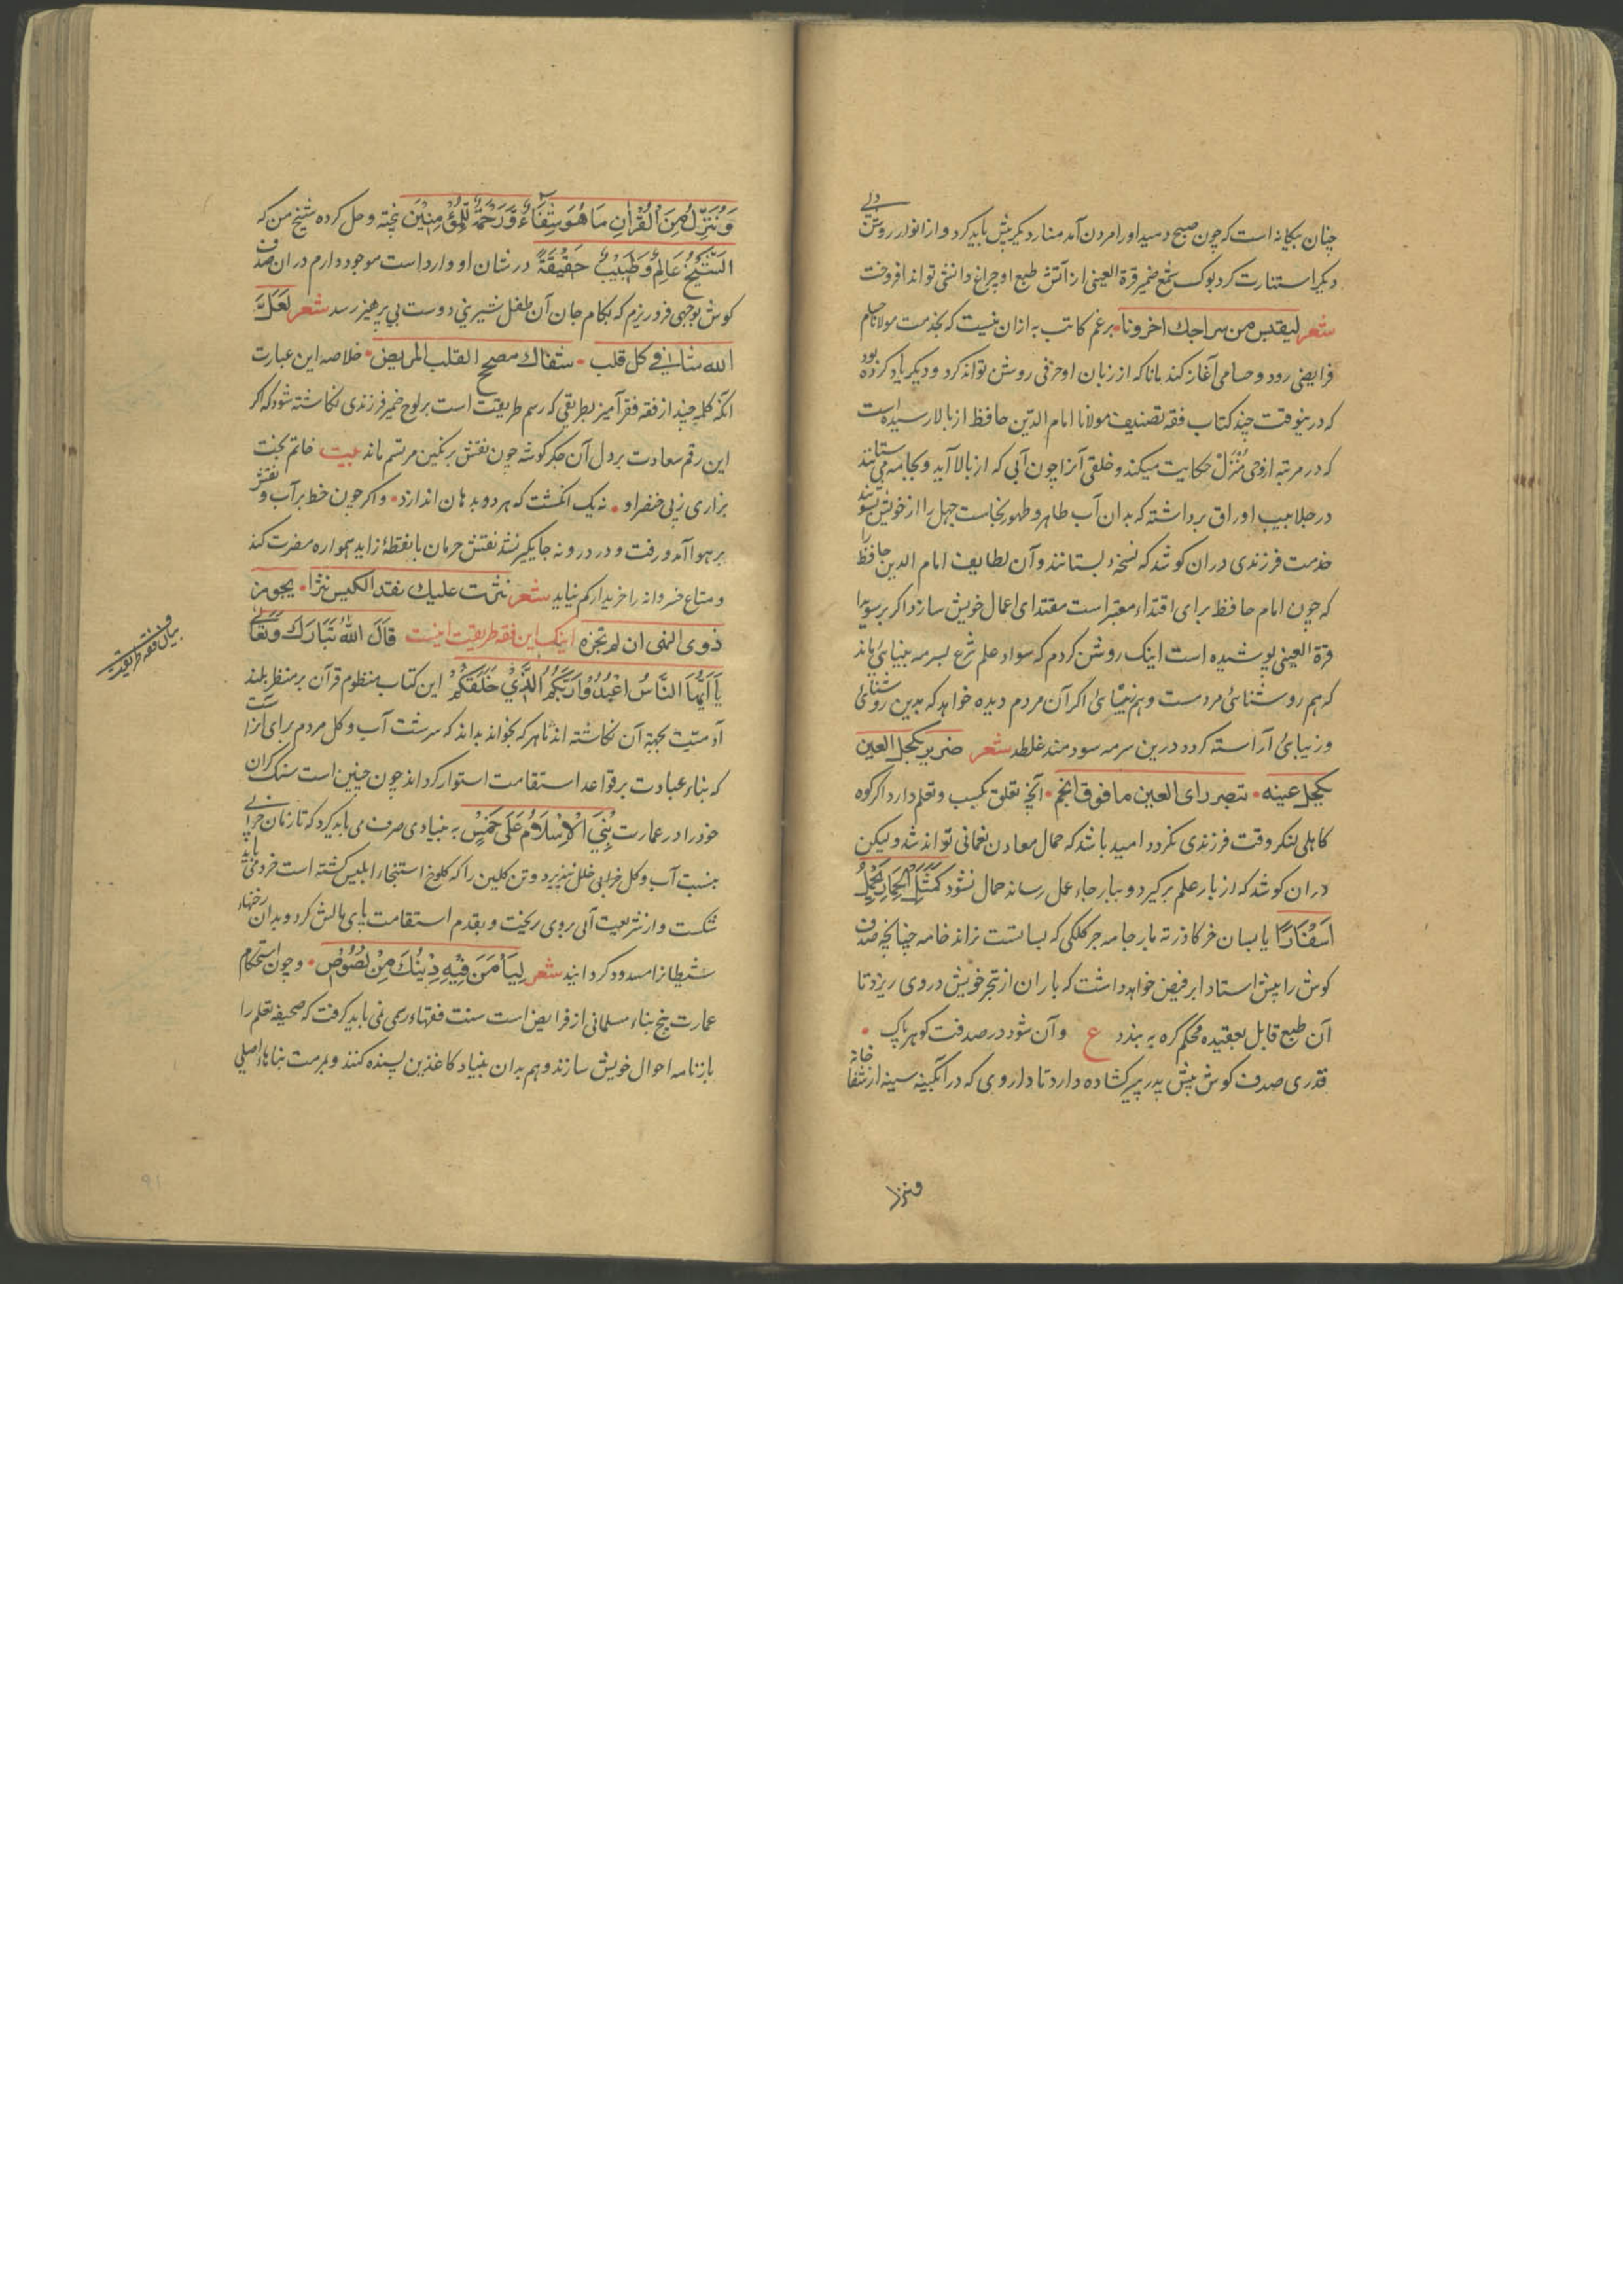 چنان بیکانه است که چون صبح دمید اورا مردن آمد منار دیکر پیش باید کرد و از انوار روشن دلی
دیکر استنارت کرد بوک شمع ضمیر قرة العینی از آتش طبع او چراغ دانش تواند افروخت
شعر لیقتبس من سراجك اخرونا • برغم کاتب به ازان نیست که بخدمت مولانا حسام
فرایضی رود و حسامی آغاز کند مانا که از زبان او حرفی روشن تواند کرد و دیکر یاد کرده بود
که درینوقت چند کتاب فقه تصنیف مولانا امام الدین حافظ از بالا رسیده است
که در مرتبه از وحی مُنْزَلْ حکایت میکند و خلقی آنرا چون آبی که از بالا آید و بجامه می ستانند
در جلابیب اوراق برداشته که بدان آب طاهر و طهور نجاست جهل را از خویش بشویند
خدمت فرزندی دران کوشد که نسخه بستانند و آن لطایف امام الدین حافظ را
که چون امام حافظ برای اقتداء معتبر است مقتدای اعمال خویش سازد اکر بر سویدا
قرة العینی پوشیده است اینک روشن کردم که سواد علم شرع بسرمه بینائی ماند
که هم روشنائی مردمست و هم زیبائی اکر آن مردم دیده خواهد که بدین روشنائی
و زیبائی آراسته کردد درین سرمه سودمند غلطد شعر ضریر یکحل العین
یکحل عینه • تبصر رای العین مافوق انجم • آنچه تعلق بکسب و تعلم دارد اکر کوه
کاهلی لنکر وقت فرزندی نکردد امید باشد که حمال معادن نعمانی تواند شد ولیکن
دران کوشد که از بار علم برکیرد و ببار جاء عمل رساند حمال نشود کَمَثَلِ الْحِمَارِ یَحْمِلُ
اَسْفَارًا یا بسان خر کاذر ته بار جامه خر کلکی که بسا بتست نراند خامه چنانچه صدف
کوش را پیش استاد ابر فیض خواهد داشت که باران از تبحر خویش در وی ریزد تا
آن طبع قابل بعقیده محکم کره به بندد ع وآن شود در صدفت کوهر پاک •
قدری صدف کوش پیش پدر پیر کشاده دارد تا داروی که در آبکینه سینه از شفا خانه
وننزل
وَنُنَزِّلُ مِنَ الْقُرْاٰنِ مَا هُوَ شِفَاءٌ وَّرَحْمَةٌ لِّلْمُؤْمِنِیْنَ پخته و حل کرده شیخ من که
الشَّیْخُ عَالِمٌ وَطَبِیْبٌ حَقِیْقَةً در شان او وارد است موجود دارم دران صدف
کوش بوجهی فرو ریزم که بکام جان آن طفل شیرینی دوست بی پرهیز رسد شعر لَعَلَّ
الله شافی کل قلب • شفاك مصحح القلب المریض • خلاصه این عبارت
آنکه کلمه چند از فقه فقر آمیز بطریقی که رسم طریقت است بر لوح ضمیر فرزندی نکاشته شود که اکر
این رقم سعادت بر دل آن جکرکوشه چون نقش بر نکین مرتسم ماند بیت خاتم بخت
براری زپی خنصر او • نه یک انکشت که هر دو بدهان اندازد • واکر چون خط بر آب و نقش
بر هوا آمد و رفت و در درونه جایکیر نشد نقش حرمان با نقطهٔ زاید همواره مضرت کند
و متاع خسروانه را خریدار کم نیاید شعر نثرت علیك نقد الکیس نثرا • یجوز من
ذوی النهی ان لم تجزه اینک این فقه طریقت اینست قَالَ اللهُ تَبَارَكَ وَتَعَالٰی
یَا اَیُّهَا النَّاسُ اعْبُدُوْا رَبَّکُمُ الَّذِیْ خَلَقَکُمْ این کتاب منظوم قرآن بر منظر بلند
آدمیت بجهة آن نکاشته اند تا هر که بخواند بداند که سرشت آب و کل مردم برای آنراست
که بناء عبادت بر قواعد استقامت استوار کرداند چون چنین است سنک کران
خود را در عمارت بُنِیَ الْاِسْلَامُ عَلٰی خَمْسٍ به بنیادی صرف می باید کرد که تا زمان خرابی
بنسبت آب و کل خرابی خلل نپذیرد و تن کلین را که کلوخ استنجاء ابلیس کشته است خرد می باید
شکست و از شریعت آبی بروی ریخت و بقدم استقامت پای مالش کرد و بدان رخنهاء
شیطانرا مسدود کردانید شعر لِیَأْمَنَ فِیْهِ دِیْنُكَ مِنْ لُصُوْصٍ • وچون استحکام
عمارت پنج بناء مسلمانی از فرایض است سنت فقهاء رسمی نمی باید کرفت که صحیفه تعلم را
بازنامه احوال خویش سازند و هم بدان بنیاد کاغذین بسنده کنند و بمرمت بناهاء اصلی
بیان فقه طریقت
۹۱